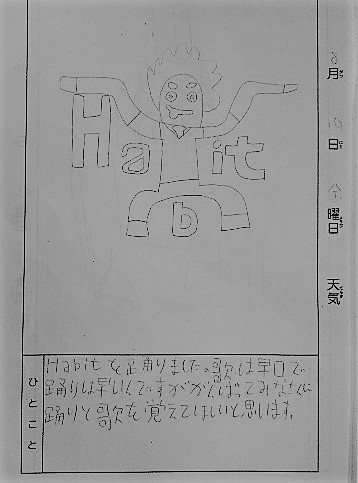 8月
日
曜日
天気
Habit
ひとこと
Habitを踊りました。歌は早口で
踊りは早いんですががんばってみなさんに
踊りと歌を覚えてほしいと思います。